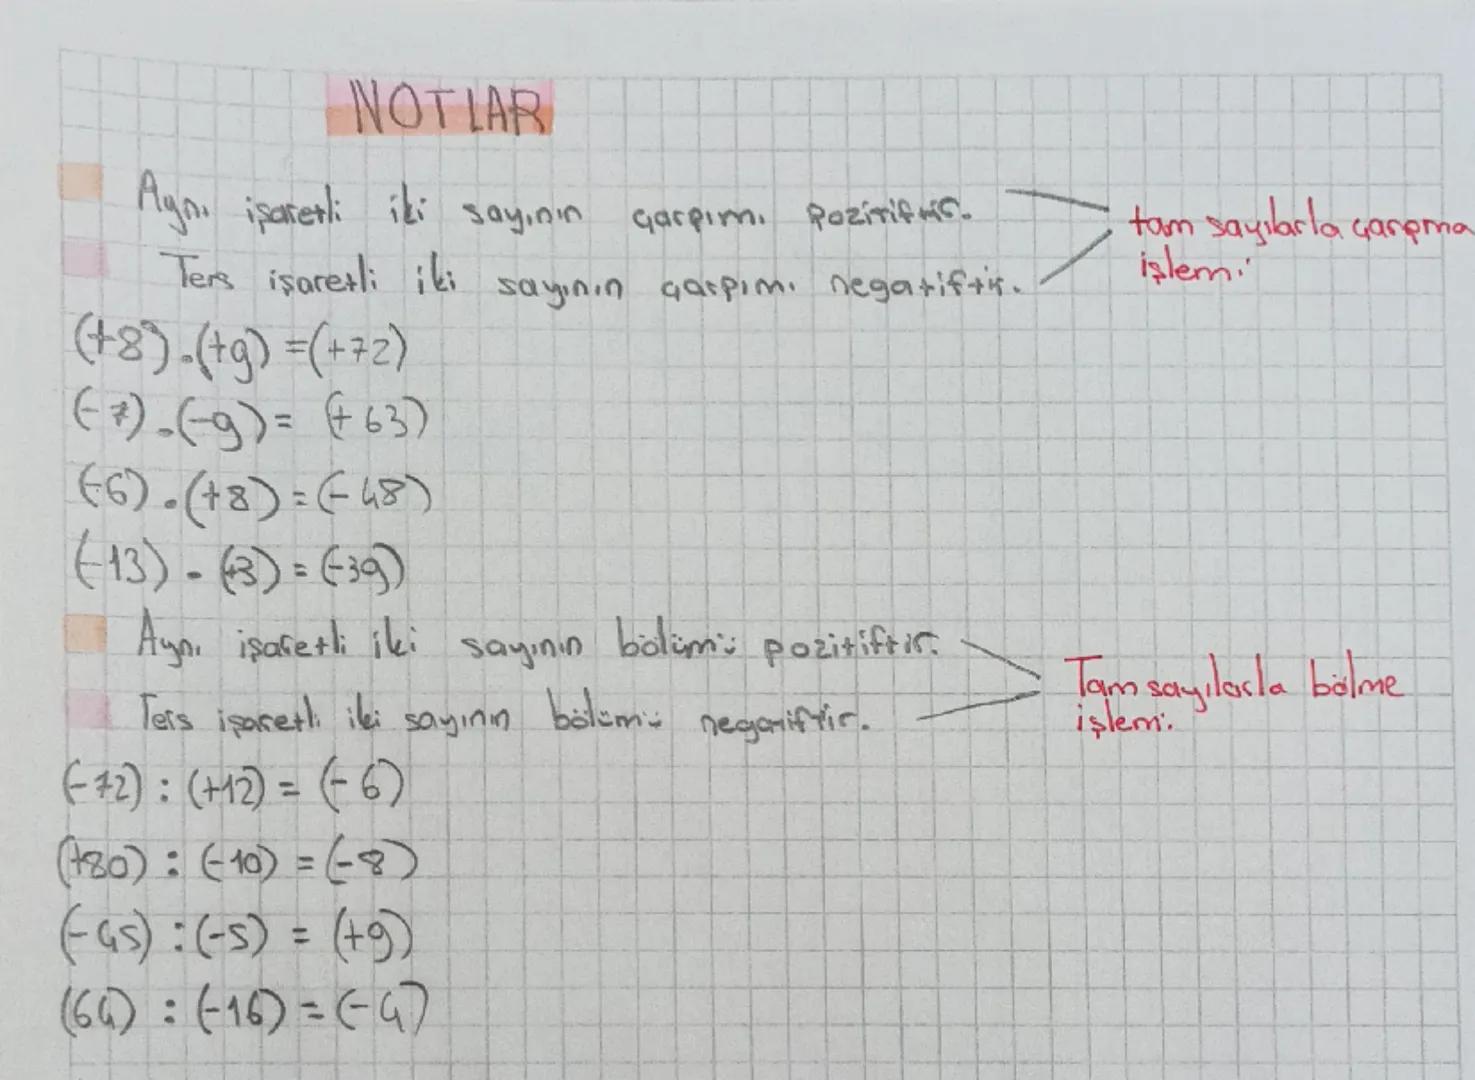 NOTLAR
Aynı işaretli iki sayının çarpımı pozitiftir.
tam sayılarla çarpma
işlemi
Ters işaretli iki sayının çarpımı negatiftir.
(+8).(+9)=(+72)
(-7).(-9)= (+63)
(-6).(+8)=(-48)
(-13).(+3)=(-39)
Aynı işaretli iki sayının bölümü pozitiftir.
Tam sayılarla bölme
işlemi.
Ters işaretli iki sayının bölümü negatiftir.
(-72):(+12)=(-6)
(+80):(-10)=(-8)
(-45):(-5)=(+9)
(64):(-16)=(-4)